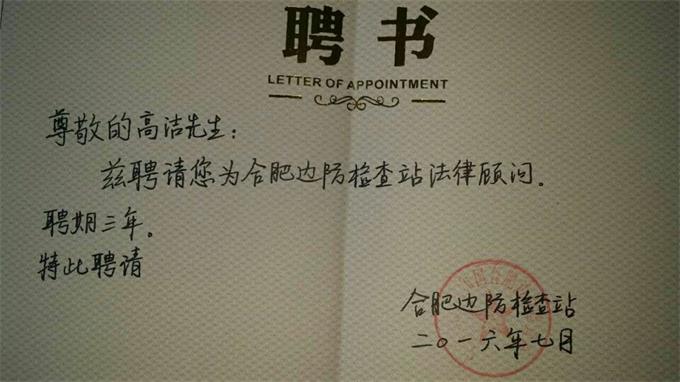 聘书
LETTER OF APPOINTMENT
尊敬的高洁先生：
兹聘请您为合肥边防检查站法律顾问。
聘期三年。
特此聘请
合肥边防检查站
二〇一六年七月